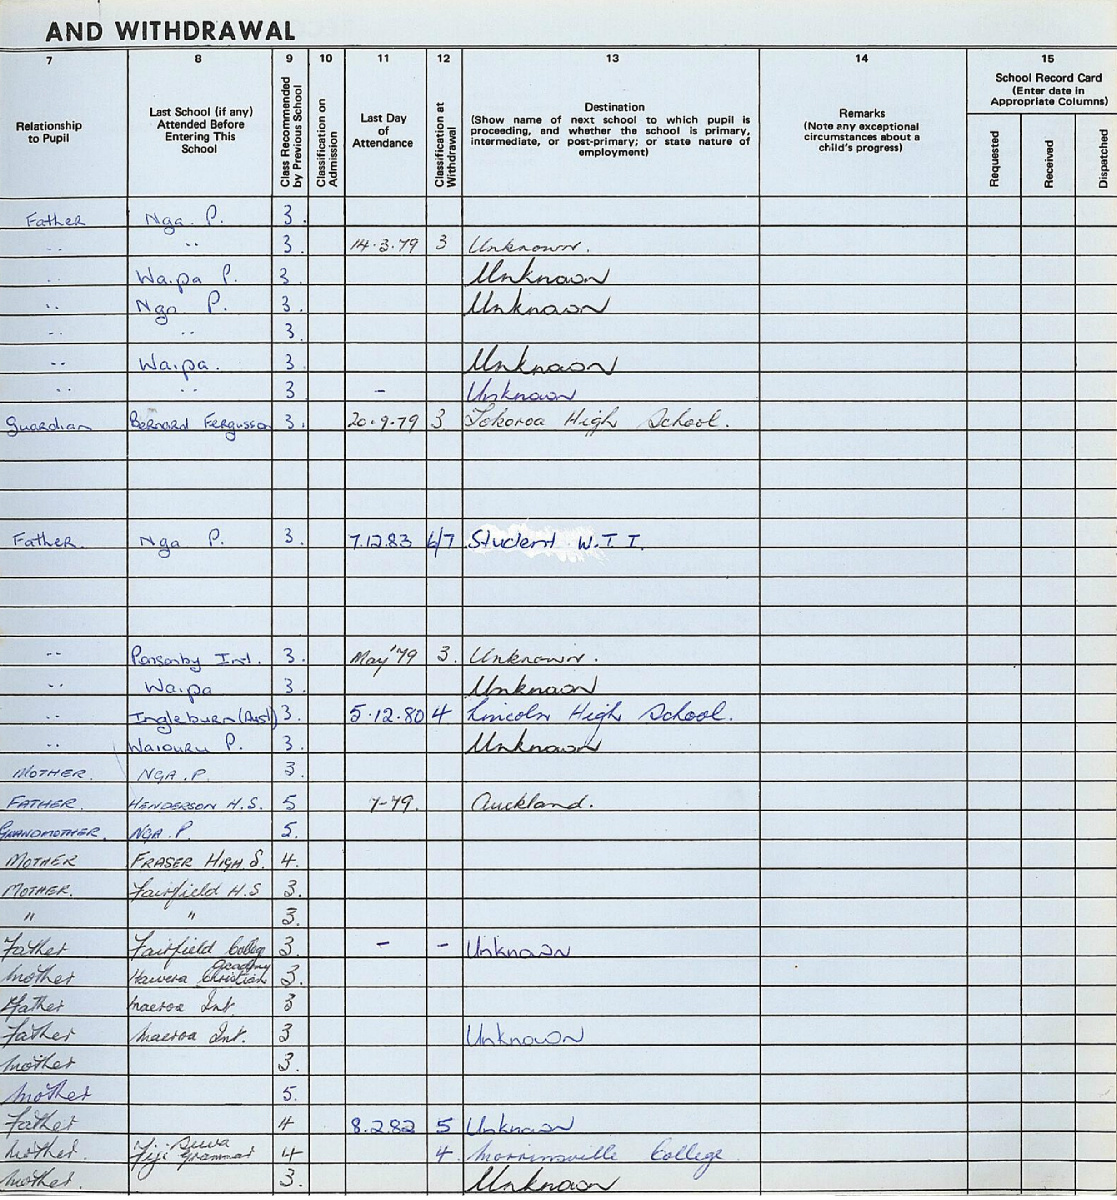 AND WITHDRAWAL
7 8 9 10 11 12 13 14 15
Relationship to Pupil
Last School (if any) Attended Before Entering This School
Class Recommended by Previous School
Classification on Admission
Last Day of Attendance
Classification at Withdrawal
Destination
(Show name of next school to which pupil is proceeding, and whether the school is primary, intermediate, or post-primary; or state nature of employment)
Remarks
(Note any exceptional circumstances about a child's progress)
School Record Card
(Enter date in Appropriate Columns)
Requested
Received
Dispatched
Father Nga. P. 3.
.. .. 3. 14.3.79 3 Unknown.
.. Waipa P. 3. Unknown
.. Nga P. 3. Unknown
.. .. 3.
.. Waipa. 3. Unknown
.. .. 3 – Unknown
Guardian Bernard Fergusson 3. 20.9.79 3 Tokoroa High School.
Father. Nga P. 3. 7.12.83 6/7 Student W.T.I.
.. Ponsonby Int. 3. May '79 3. Unknown.
.. Waipa 3. Unknown
.. Ingleburn (Aust) 3. 5.12.80 4 Lincoln High School.
.. Waiouru P. 3. Unknown
MOTHER. NGA. P. 3.
FATHER. HENDERSON H.S. 5 7-79. Auckland.
GRANDMOTHER. NGA. P. 5.
MOTHER FRASER HIGH S. 4.
MOTHER. Fairfield H.S 3.
" " 3.
Father Fairfield College 3. – – Unknown
Mother Hawera Christian Academy 3.
Father Maeroa Int. 3
Father Maeroa Int. 3 Unknown
Mother 3.
Mother 5.
Father 4 8.2.82 5 Unknown
Mother Suva Fiji Grammar 4 4. Morrinsville College
Mother. 3. Unknown